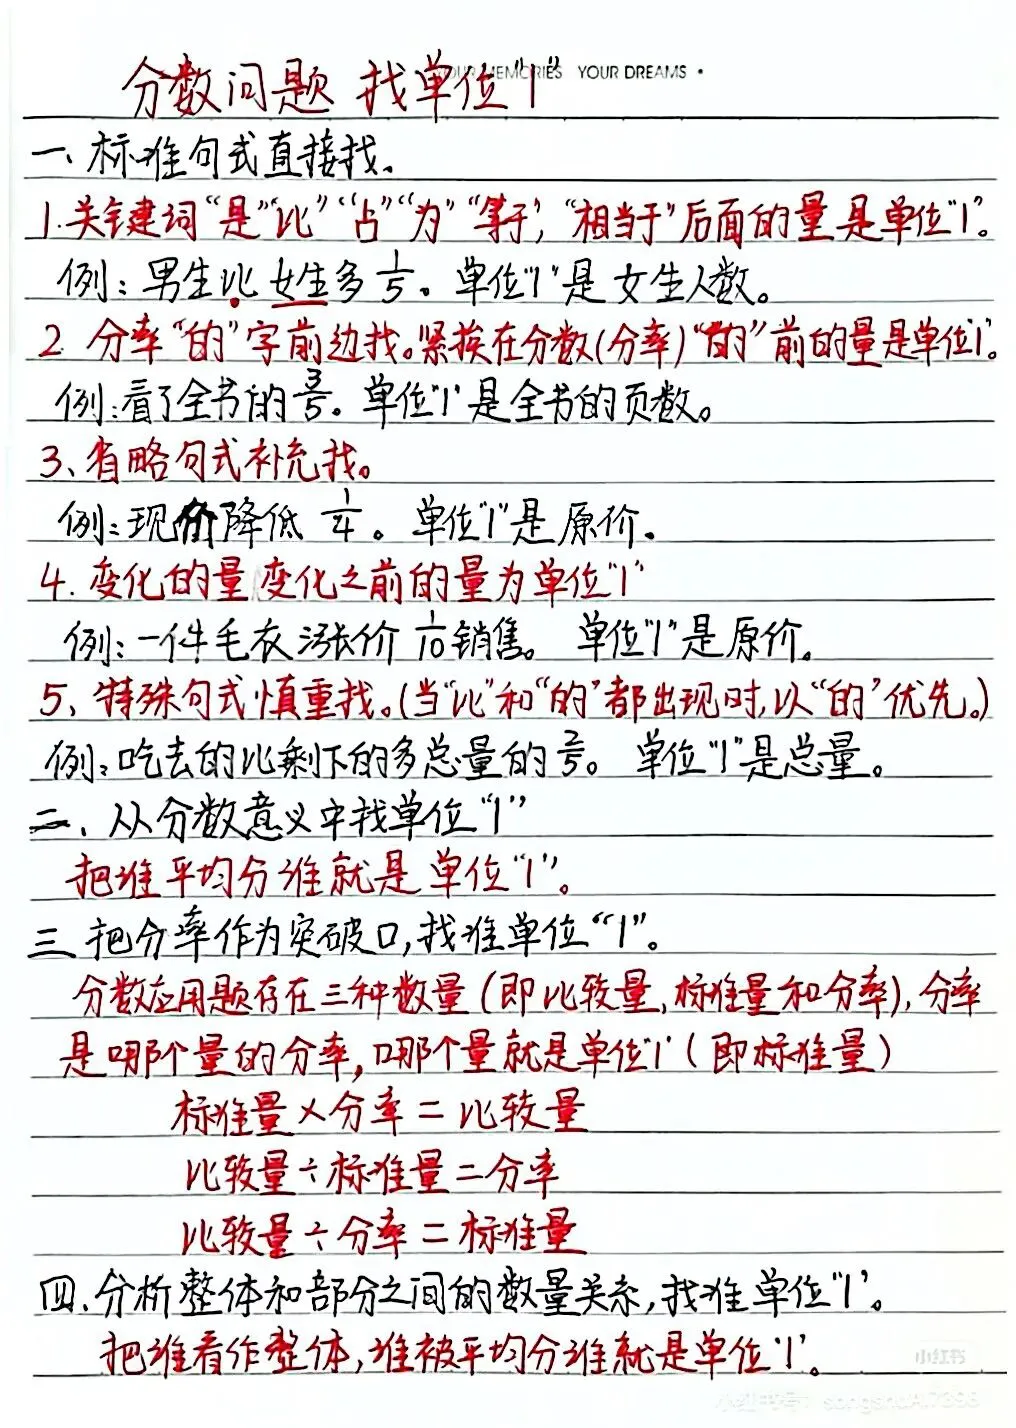 YOUR MEMORIES YOUR DREAMS •
分数问题 找单位“1”
一、标准句式直接找。
1.关键词“是”“比”“占”“为”“等于”,“相当于”后面的量是单位“1”。
例:男生比女生多1/5。单位“1”是女生人数。
2 分率“的”字前边找。紧挨在分数(分率)“的”前的量是单位“1”。
例:看了全书的3/5。单位“1”是全书的页数。
3、省略句式补充找。
例:现价降低 1/4。单位“1”是原价.
4.变化的量 变化之前的量为单位“1”
例:一件毛衣涨价1/10销售。 单位“1”是原价。
5、特殊句式慎重找。(当“比”和“的”都出现时,以“的”优先。)
例:吃去的比剩下的多总量的2/5。 单位“1”是总量。
二、从分数意义中找单位“1”
把谁平均分谁就是单位“1”。
三 把分率作为突破口,找准单位“1”。
分数应用题存在三种数量(即比较量,标准量和分率),分率
是哪个量的分率,哪个量就是单位“1”(即标准量)
标准量×分率=比较量
比较量÷标准量=分率
比较量÷分率=标准量
四.分析整体和部分之间的数量关系,找准单位“1”。
把谁看作整体,谁被平均分谁就是单位“1”。
小红书